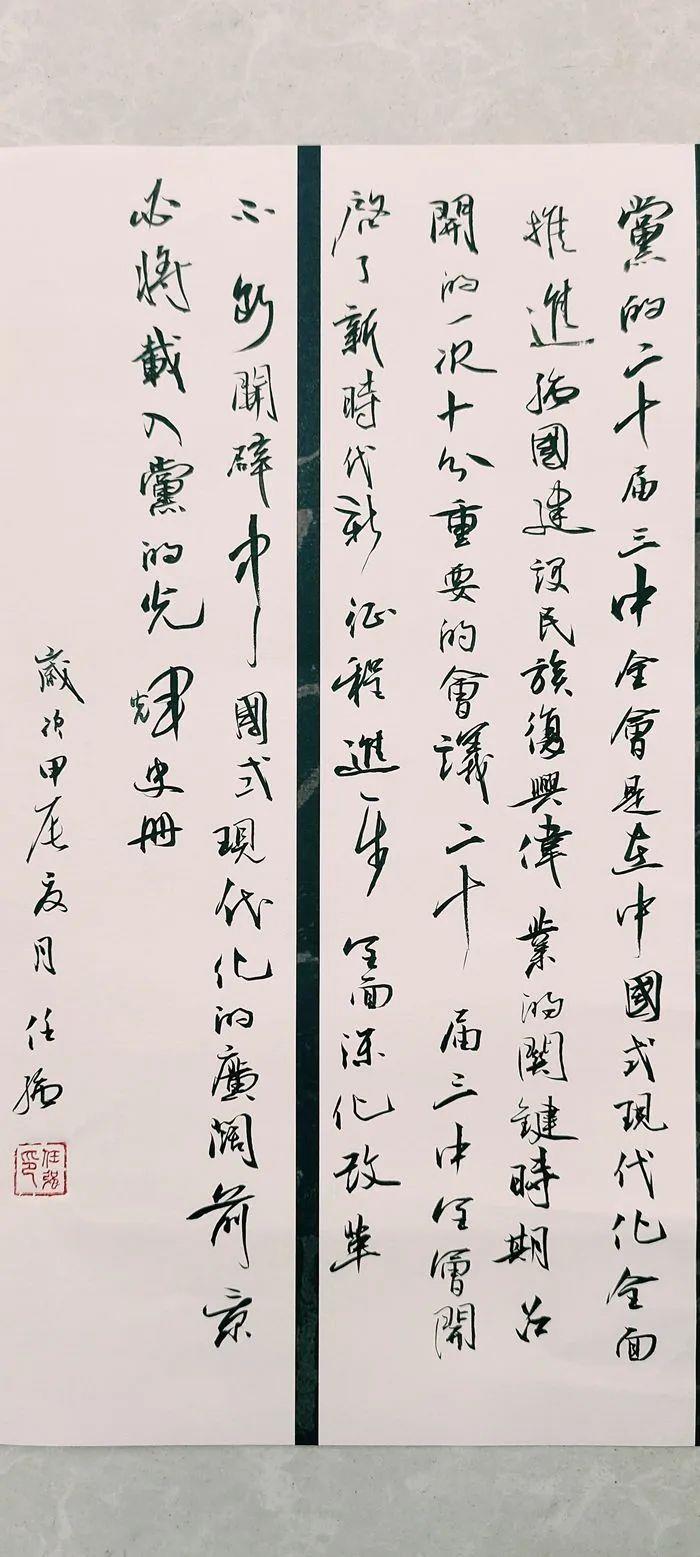 黨的二十届三中全會是在中國式現代化全面
推進強國建設民族復興偉業的関鍵時期召
開的一次十分重要的會議二十届三中全會開
啓了新時代新征程進一步全面深化改革
不断開辟中國式現代化的廣闊前景
必將載入黨的光輝史冊
歲次甲辰夏月任強
任強印